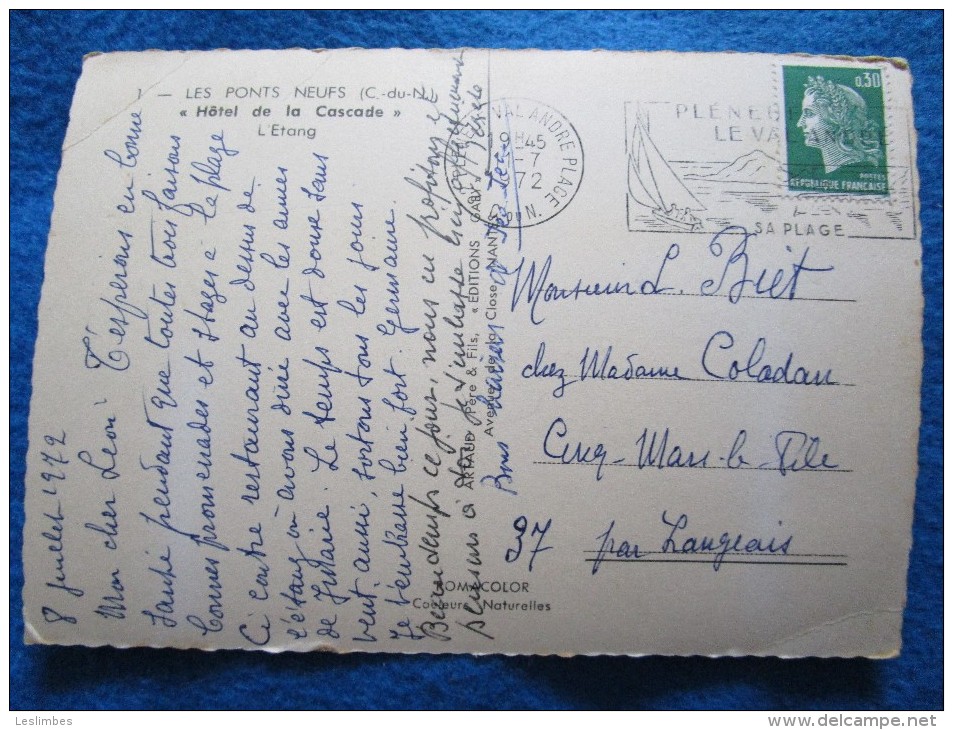 1 — LES PONTS NEUFS (C.-du-N.)
« Hôtel de la Cascade »
L'Etang
8 Juillet 1972
Mon cher Léon J'espérons en bonne
santé pendant que toutes trois faisons
bonnes promenades et stages à la plage
Ci contre restaurant au dessus de
l'étang où avons diné avec les amies
de . Le temps est doux sans
vent aussi, sortons tous les jours
Je t'embrasse bien fort. Germaine.
ce jour, nous en profitons et
à toi. Je t'embrasse
Bons baisers
ARTAUD Père & Fils, « EDITIONS GABY »
Avenue de la Close NANTES
ROMACOLOR
Couleurs Naturelles
VAL ANDRE PLAGE
19H45
-7
72
C. DU N.
PLENEUF
LE VAL ANDRE
SA PLAGE
0,30
POSTES
REPUBLIQUE FRANÇAISE
Monsieur L. Biet
chez Madame Coladan
Cinq-Mars-la-Pile
37 par Langeais
Leslimbes
delcampe.net